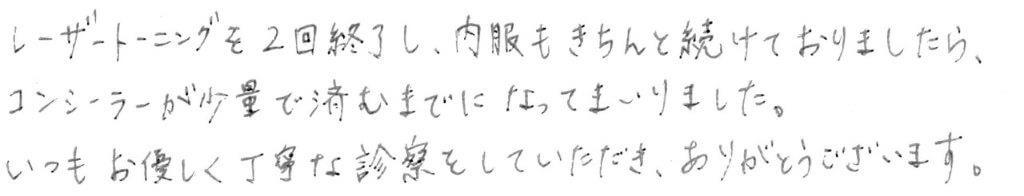 レーザートーニングを2回終了し、内服もきちんと続けておりましたら、
コンシーラーが少量で済むまでになってまいりました。
いつもお優しく丁寧な診察をしていただき、ありがとうございます。